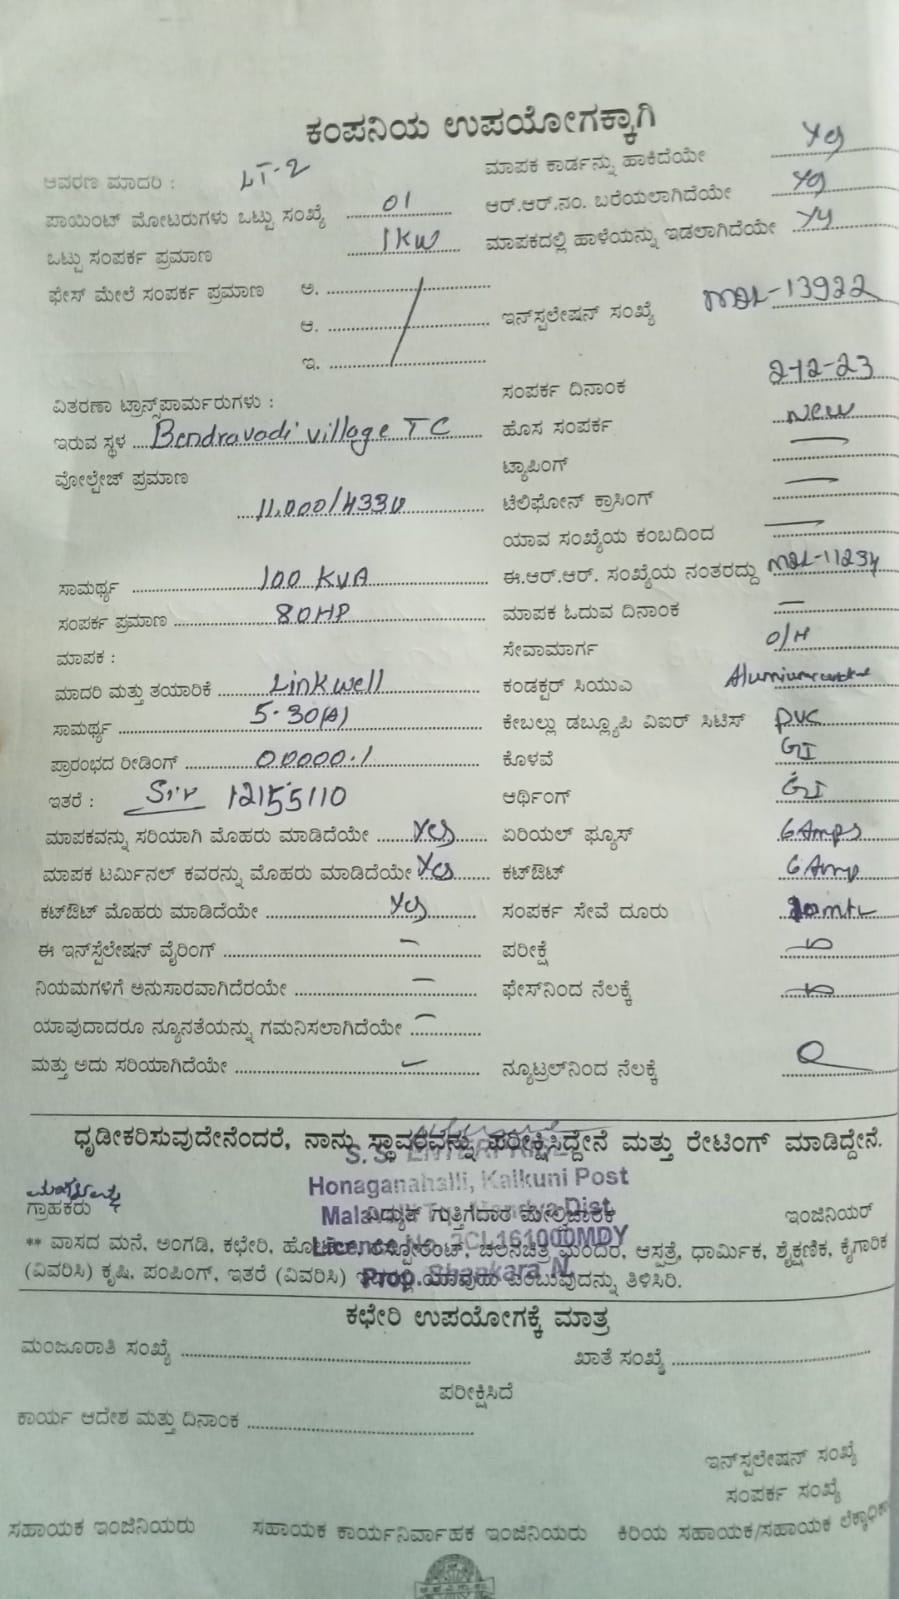 ಕಂಪನಿಯ ಉಪಯೋಗಕ್ಕಾಗಿ
ಆವರಣ ಮಾದರಿ : LT-2
ಮಾಪಕ ಕಾರ್ಡನ್ನು ಹಾಕಿದೆಯೇ Yes
ಪಾಯಿಂಟ್ ಮೋಟರುಗಳು ಒಟ್ಟು ಸಂಖ್ಯೆ 01
ಆರ್.ಆರ್.ನಂ. ಬರೆಯಲಾಗಿದೆಯೇ Yes
ಒಟ್ಟು ಸಂಪರ್ಕ ಪ್ರಮಾಣ 1KW
ಮಾಪಕದಲ್ಲಿ ಹಾಳೆಯನ್ನು ಇಡಲಾಗಿದೆಯೇ Yes
ಫೇಸ್ ಮೇಲೆ ಸಂಪರ್ಕ ಪ್ರಮಾಣ ಅ.
ಆ.
ಇನ್‌ಸ್ಪಲೇಷನ್ ಸಂಖ್ಯೆ MDL-13922
ಇ.
ಸಂಪರ್ಕ ದಿನಾಂಕ 2-12-23
ವಿತರಣಾ ಟ್ರಾನ್ಸ್‌ಪಾರ್ಮರುಗಳು :
ಇರುವ ಸ್ಥಳ Bendravadi village TC
ಹೊಸ ಸಂಪರ್ಕ New
ವೋಲ್ಟೇಜ್ ಪ್ರಮಾಣ
ಟ್ಯಾಪಿಂಗ್
11,000/433V
ಟೆಲಿಫೋನ್ ಕ್ರಾಸಿಂಗ್
ಯಾವ ಸಂಖ್ಯೆಯ ಕಂಬದಿಂದ
ಸಾಮರ್ಥ್ಯ 100 KVA
ಈ.ಆರ್.ಆರ್. ಸಂಖ್ಯೆಯ ನಂತರದ್ದು MDL-11234
ಸಂಪರ್ಕ ಪ್ರಮಾಣ 80HP
ಮಾಪಕ ಓದುವ ದಿನಾಂಕ
ಮಾಪಕ :
ಸೇವಾಮಾರ್ಗ O/H
ಮಾದರಿ ಮತ್ತು ತಯಾರಿಕೆ Linkwell
ಕಂಡಕ್ಟರ್ ಸಿಯುಎ
ಸಾಮರ್ಥ್ಯ 5-30(A)
ಕೇಬಲ್ಲು ಡಬ್ಲ್ಯೂಪಿ ವಿಐಆರ್ ಸಿಟಿಸ್ PVC
ಪ್ರಾರಂಭದ ರೀಡಿಂಗ್ 00000.1
ಕೊಳವೆ GI
ಇತರೆ : 12155110
ಆರ್ಥಿಂಗ್ GI
ಮಾಪಕವನ್ನು ಸರಿಯಾಗಿ ಮೊಹರು ಮಾಡಿದೆಯೇ Yes
ಏರಿಯಲ್ ಫ್ಯೂಸ್ 6 Amps
ಮಾಪಕ ಟರ್ಮಿನಲ್ ಕವರನ್ನು ಮೊಹರು ಮಾಡಿದೆಯೇ Yes
ಕಟ್‌ಔಟ್ 6 Amp
ಕಟ್‌ಔಟ್ ಮೊಹರು ಮಾಡಿದೆಯೇ Yes
ಸಂಪರ್ಕ ಸೇವೆ ದೂರು
ಈ ಇನ್‌ಸ್ಪೆಲೇಷನ್ ವೈರಿಂಗ್
ಪರೀಕ್ಷೆ
ನಿಯಮಗಳಿಗೆ ಅನುಸಾರವಾಗಿದೆರಯೇ
ಫೇಸ್‌ನಿಂದ ನೆಲಕ್ಕೆ
ಯಾವುದಾದರೂ ನ್ಯೂನತೆಯನ್ನು ಗಮನಿಸಲಾಗಿದೆಯೇ
ಮತ್ತು ಅದು ಸರಿಯಾಗಿದೆಯೇ
ನ್ಯೂಟ್ರಲ್‌ನಿಂದ ನೆಲಕ್ಕೆ
ಧೃಡೀಕರಿಸುವುದೇನೆಂದರೆ, ನಾನು ಸ್ಥಾವರವನ್ನು ಪರೀಕ್ಷಿಸಿದ್ದೇನೆ ಮತ್ತು ರೇಟಿಂಗ್ ಮಾಡಿದ್ದೇನೆ.
Honaganahalli, Kalkuni Post
ಗ್ರಾಹಕರು ವಿದ್ಯುತ್ ಗುತ್ತಿಗೆದಾರ ಮೇಲ್ವಿಚಾರಕ ಇಂಜಿನಿಯರ್
** ವಾಸದ ಮನೆ, ಅಂಗಡಿ, ಕಛೇರಿ, ಚಲನಚಿತ್ರ ಮಂದಿರ, ಆಸ್ಪತ್ರೆ, ಧಾರ್ಮಿಕ, ಶೈಕ್ಷಣಿಕ, ಕೈಗಾರಿಕ
(ವಿವರಿಸಿ) ಕೃಷಿ, ಪಂಪಿಂಗ್, ಇತರೆ (ವಿವರಿಸಿ) ಎಂಬುವುದನ್ನು ತಿಳಿಸಿರಿ.
Prop. Shankara N.
ಕಛೇರಿ ಉಪಯೋಗಕ್ಕೆ ಮಾತ್ರ
ಮಂಜೂರಾತಿ ಸಂಖ್ಯೆ ಖಾತೆ ಸಂಖ್ಯೆ
ಪರೀಕ್ಷಿಸಿದೆ
ಕಾರ್ಯ ಆದೇಶ ಮತ್ತು ದಿನಾಂಕ
ಇನ್‌ಸ್ಪಲೇಷನ್ ಸಂಖ್ಯೆ
ಸಂಪರ್ಕ ಸಂಖ್ಯೆ
ಸಹಾಯಕ ಇಂಜಿನಿಯರು ಸಹಾಯಕ ಕಾರ್ಯನಿರ್ವಾಹಕ ಇಂಜಿನಿಯರು ಕಿರಿಯ ಸಹಾಯಕ/ಸಹಾಯಕ